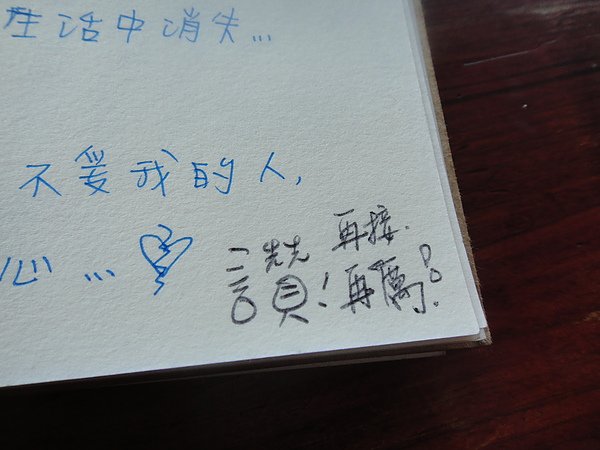 生活中消失...
不爱我的人,
心...
讚！
再接.
再厲!